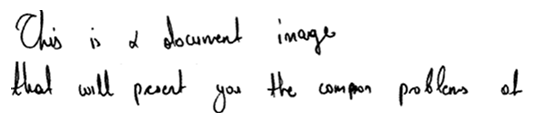 This is a document image
that will present you the common problems of